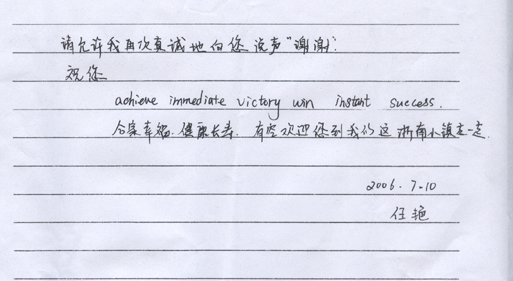 请允许我再次真诚地向您说声“谢谢”.
祝您
achieve immediate victory win instant success.
合家幸福.健康长寿. 有空欢迎您到我们这浙南小镇走一走.
2006.7.10
任艳